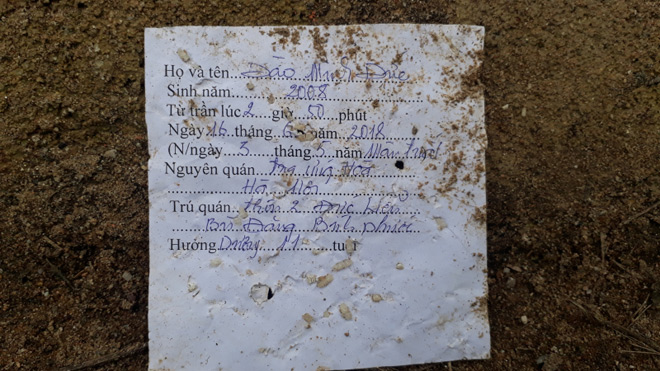 Họ và tên....Đào Minh Đức
Sinh năm..........2008
Từ trần lúc 2...giờ...50...phút
Ngày 16..tháng..6..năm...2018
(N/ngày...3.....tháng.5..năm Mậu Tuất
Nguyên quán
Hà Nội
Trú quán...thôn 2 Đức Liễu
Bù Đăng Bình Phước
Hưởng Dương....11.......tuổi